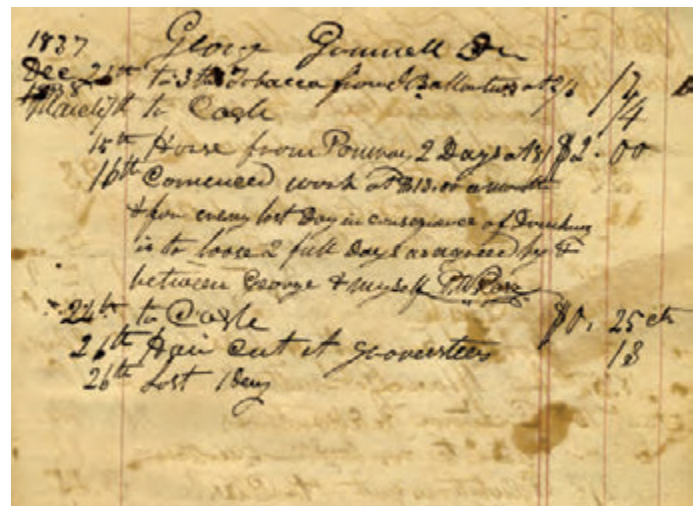 1837 George Gammell Dr
Dec 26th to 3 lbs Tobacco from Ballantines at 2/6
1838
March 7th to Cash 1/4
15th Horse from Pomroy 2 Days at $1 $2.00
16th Comenced work at $13.00 a month
& for every lost Day in consequence of Drinking
is to loose 2 full Days as agreed by &
between George & myself
24th to Cash $0. 25 cts
26th Hair Cut at Grooversteens 18
26th Lost 1 Day